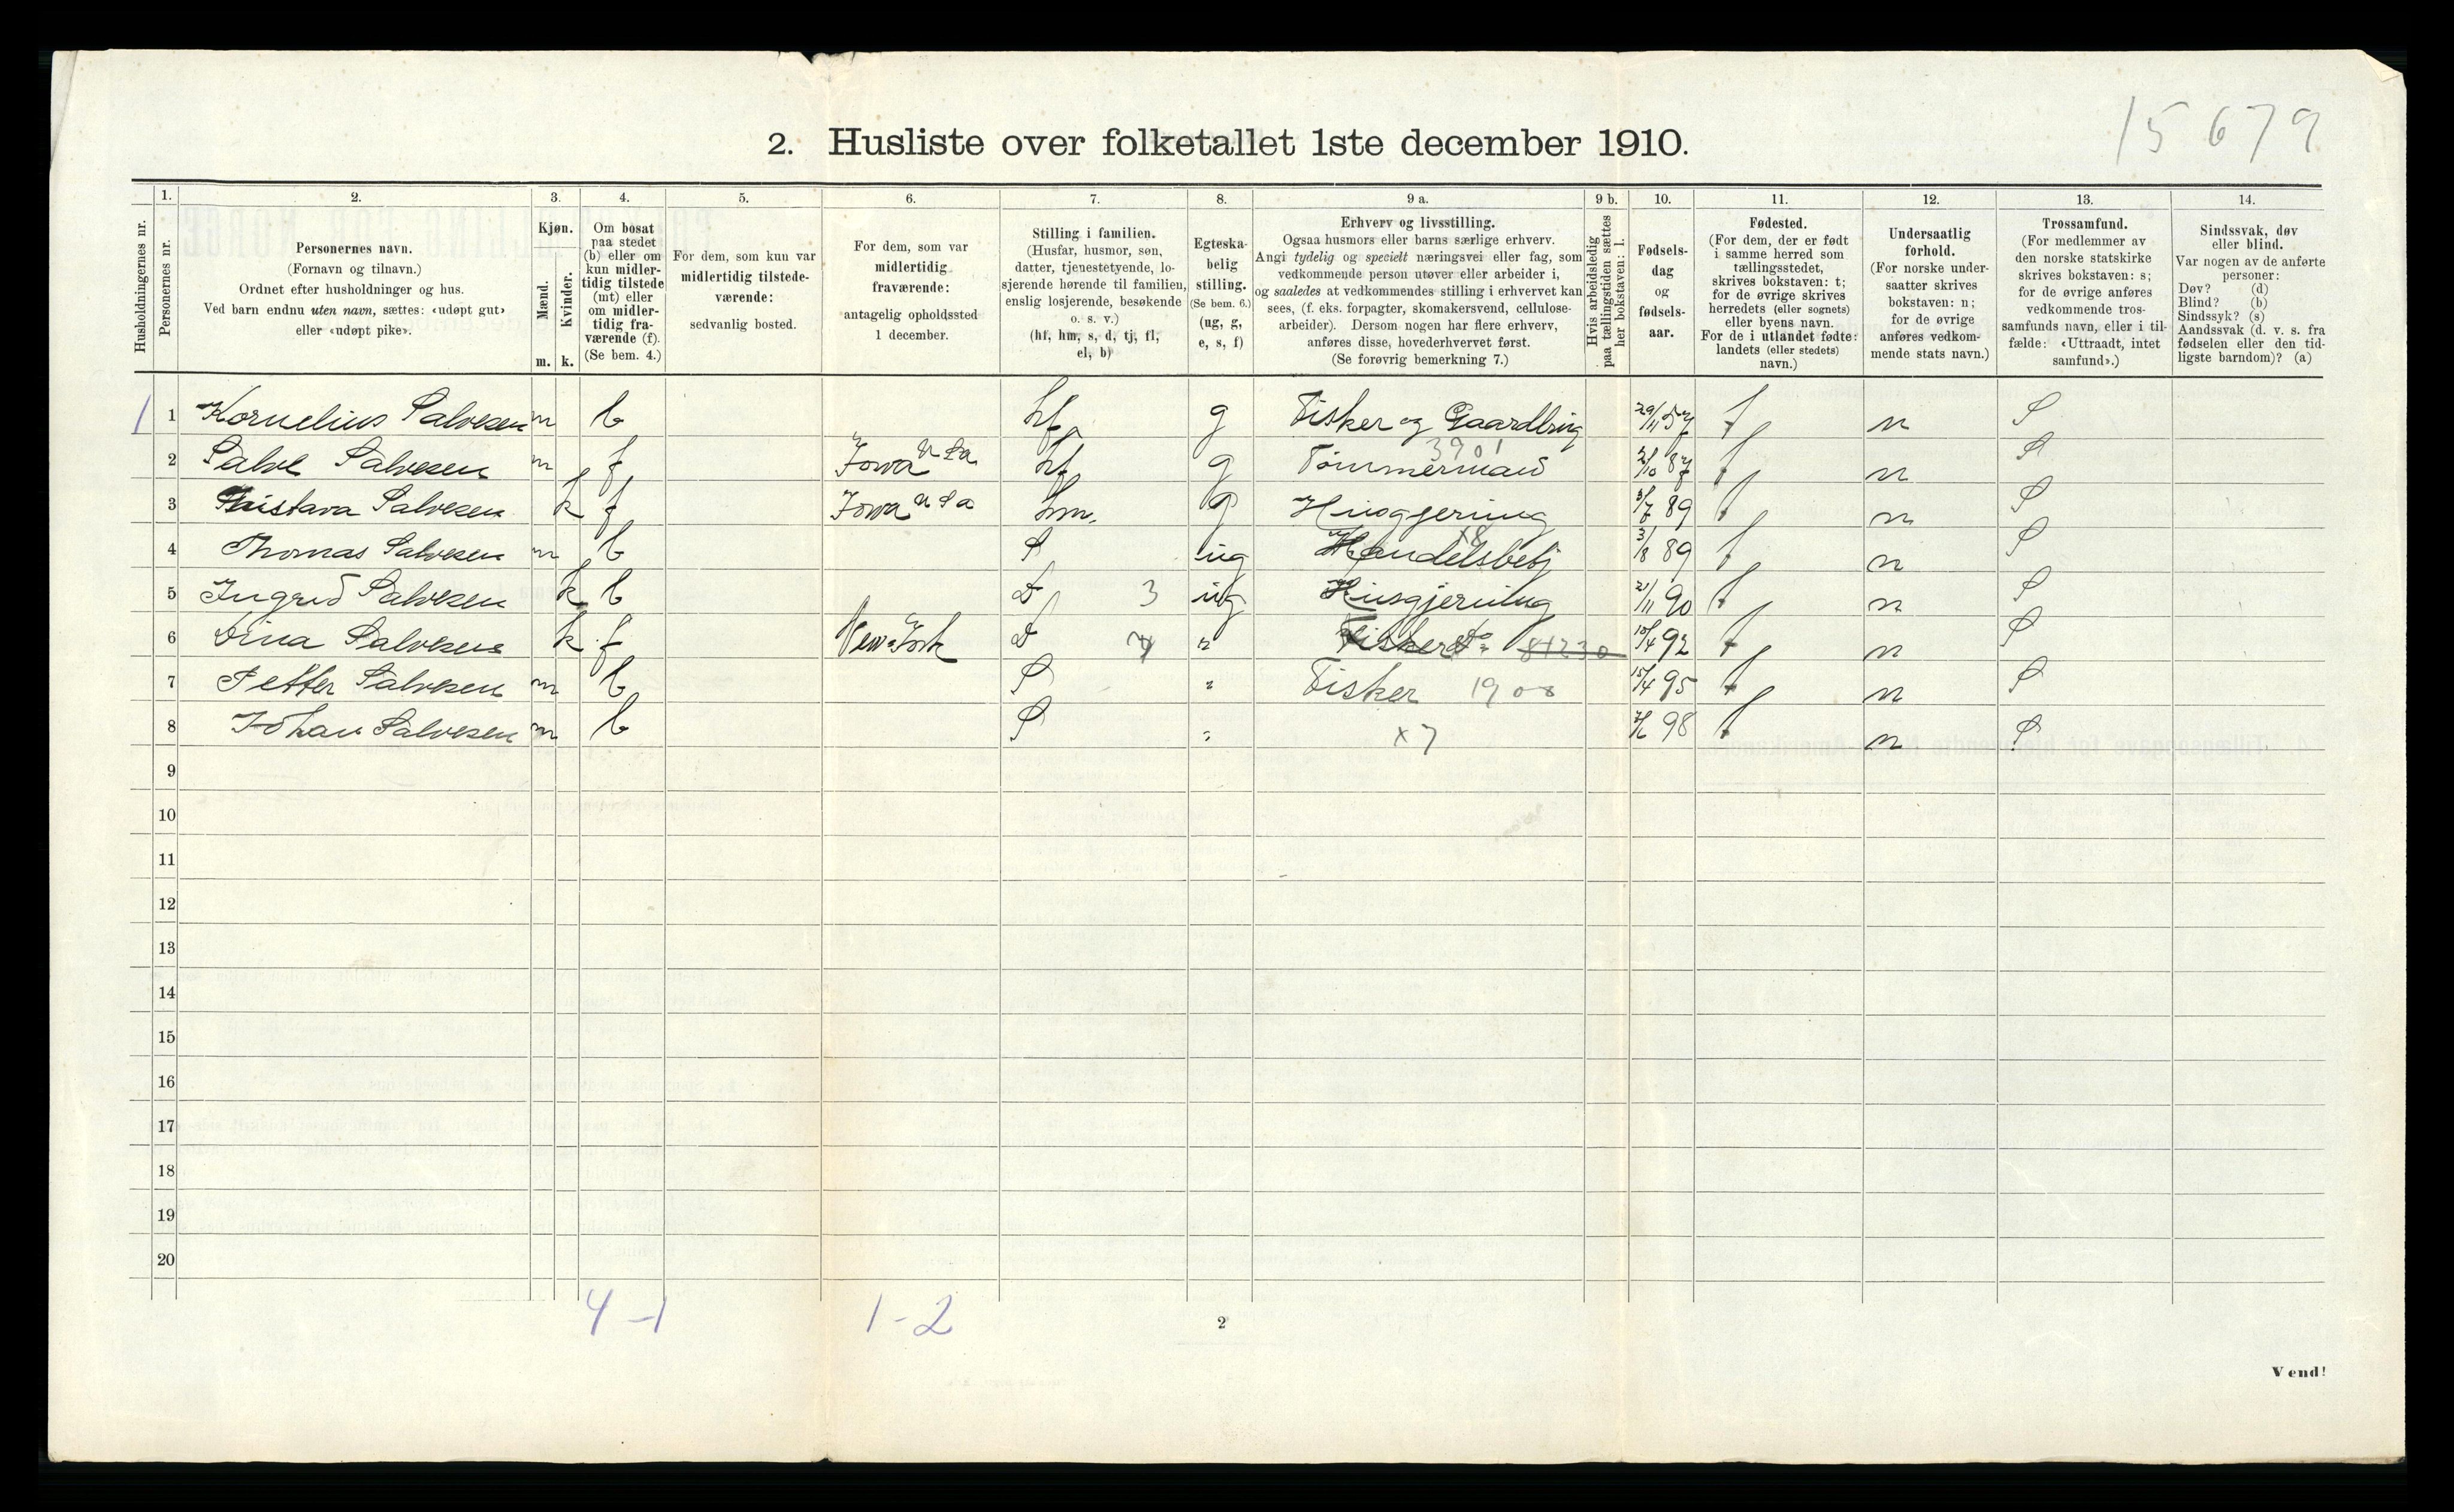 15 679
2. Husliste over folketallet 1ste december 1910.
Husholdningernes nr.
1. Personernes nr.
2. Personernes navn.
(Fornavn og tilnavn.)
Ordnet efter husholdninger og hus.
Ved barn endnu uten navn, sættes: «udøpt gut»
eller «udøpt pike».
3. Kjøn.
Mænd. Kvinder.
m. k.
4. Om bosat
paa stedet
(b) eller om
kun midler-
tidig tilstede
(mt) eller
om midler-
tidig fra-
værende (f).
(Se bem. 4.)
5. For dem, som kun var
midlertidig tilstede-
værende:
sedvanlig bosted.
6. For dem, som var
midlertidig
fraværende:
antagelig opholdssted
1 december.
7. Stilling i familien.
(Husfar, husmor, søn,
datter, tjenestetyende, lo-
sjerende hørende til familien,
enslig losjerende, besøkende
o. s. v.)
(hf, hm, s, d, tj, fl,
el, b)
8. Egteska-
belig
stilling.
(Se bem. 6.)
(ug, g,
e, s, f)
9 a. Erhverv og livsstilling.
Ogsaa husmors eller barns særlige erhverv.
Angi tydelig og specielt næringsvei eller fag, som
vedkommende person utøver eller arbeider i,
og saaledes at vedkommendes stilling i erhvervet kan
sees, (f. eks. forpagter, skomakersvend, cellulose-
arbeider). Dersom nogen har flere erhverv,
anføres disse, hovederhvervet først.
(Se forøvrig bemerkning 7.)
9 b. Hvis arbeidsledig
paa tællingstiden sættes
her bokstaven: l.
10. Fødsels-
dag
og
fødsels-
aar.
11. Fødested.
(For dem, der er født
i samme herred som
tællingsstedet,
skrives bokstaven: t;
for de øvrige skrives
herredets (eller sognets)
eller byens navn.
For de i utlandet fødte:
landets (eller stedets)
navn.)
12. Undersaatlig
forhold.
(For norske under-
saatter skrives
bokstaven: n;
for de øvrige
anføres vedkom-
mende stats navn.)
13. Trossamfund.
(For medlemmer av
den norske statskirke
skrives bokstaven: s;
for de øvrige anføres
vedkommende tros-
samfunds navn, eller i til-
fælde: «Uttraadt, intet
samfund».)
14. Sindssvak, døv
eller blind.
Var nogen av de anførte
personer:
Døv? (d)
Blind? (b)
Sindssyk? (s)
Aandssvak (d. v. s. fra
fødselen eller den tid-
ligste barndom)? (a)
1 1 Kornelius Salvesen m b hf g Fisker og Gaardbrug 29/11 57 t n S
2 Salve Salvesen m f Iowa U Sa hf g Tømmermand 3901 2/10 87 t n S
3 Salvesen k f Iowa U Sa hm. g Husgjerning 3/7 89 t n S
4 Thomas Salvesen m b S ug Handelsbetj x8 3/8 89 t n S
5 Ingrid Salvesen k b D 3 ug Husgjerning 21/11 90 t n S
6 Dina Salvesen k f New-York D 4 " 81230 10/4 92 t n S
7 Petter Salvesen m b S " Fisker 1908 15/4 95 t n S
8 Johan Salvesen m b S " x7 98 t n S
9
10
11
12
13
14
15
16
17
18
19
20
4-1 1-2
2
Vend!